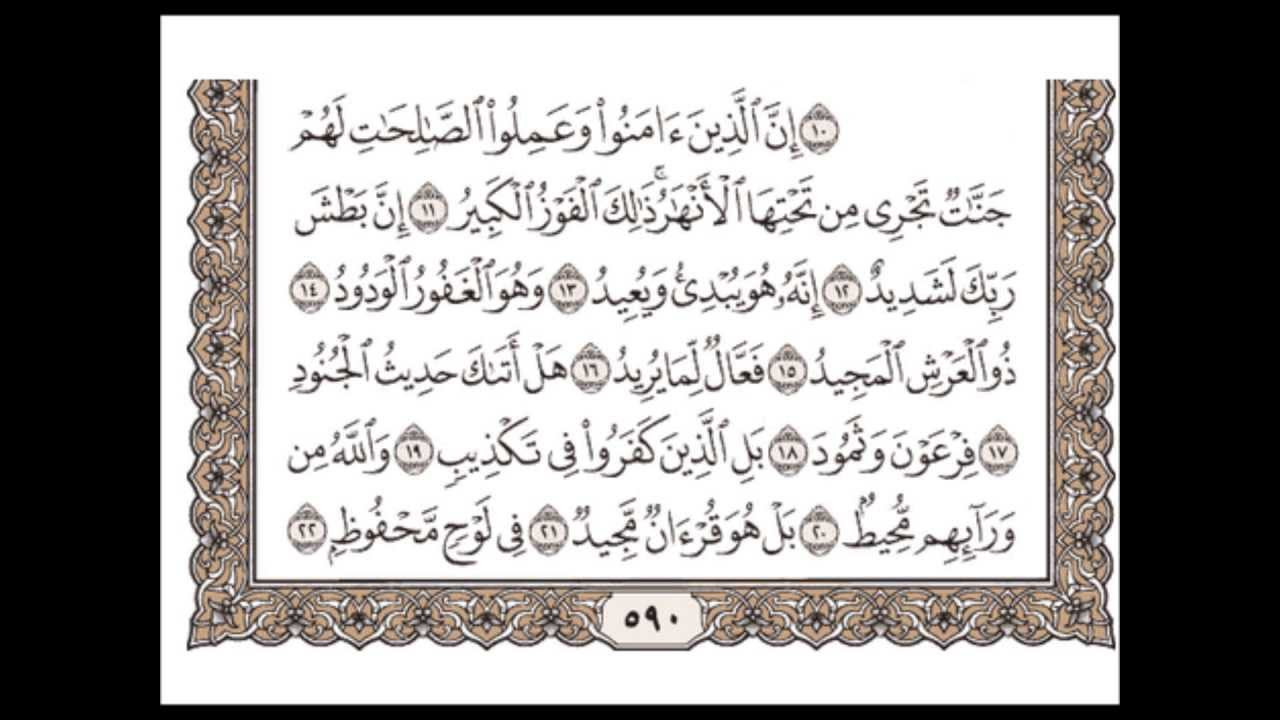 ١٠ إِنَّ ٱلَّذِينَ ءَامَنُوا۟ وَعَمِلُوا۟ ٱلصَّـٰلِحَـٰتِ لَهُمْ
جَنَّـٰتٌ تَجْرِى مِن تَحْتِهَا ٱلْأَنْهَـٰرُ ۚ ذَٰلِكَ ٱلْفَوْزُ ٱلْكَبِيرُ ١١ إِنَّ بَطْشَ
رَبِّكَ لَشَدِيدٌ ١٢ إِنَّهُۥ هُوَ يُبْدِئُ وَيُعِيدُ ١٣ وَهُوَ ٱلْغَفُورُ ٱلْوَدُودُ ١٤
ذُو ٱلْعَرْشِ ٱلْمَجِيدُ ١٥ فَعَّالٌ لِّمَا يُرِيدُ ١٦ هَلْ أَتَىٰكَ حَدِيثُ ٱلْجُنُودِ
١٧ فِرْعَوْنَ وَثَمُودَ ١٨ بَلِ ٱلَّذِينَ كَفَرُوا۟ فِى تَكْذِيبٍ ١٩ وَٱللَّهُ مِن
وَرَآئِهِم مُّحِيطٌۢ ٢٠ بَلْ هُوَ قُرْءَانٌ مَّجِيدٌ ٢١ فِى لَوْحٍ مَّحْفُوظٍۭ ٢٢
٥٩٠